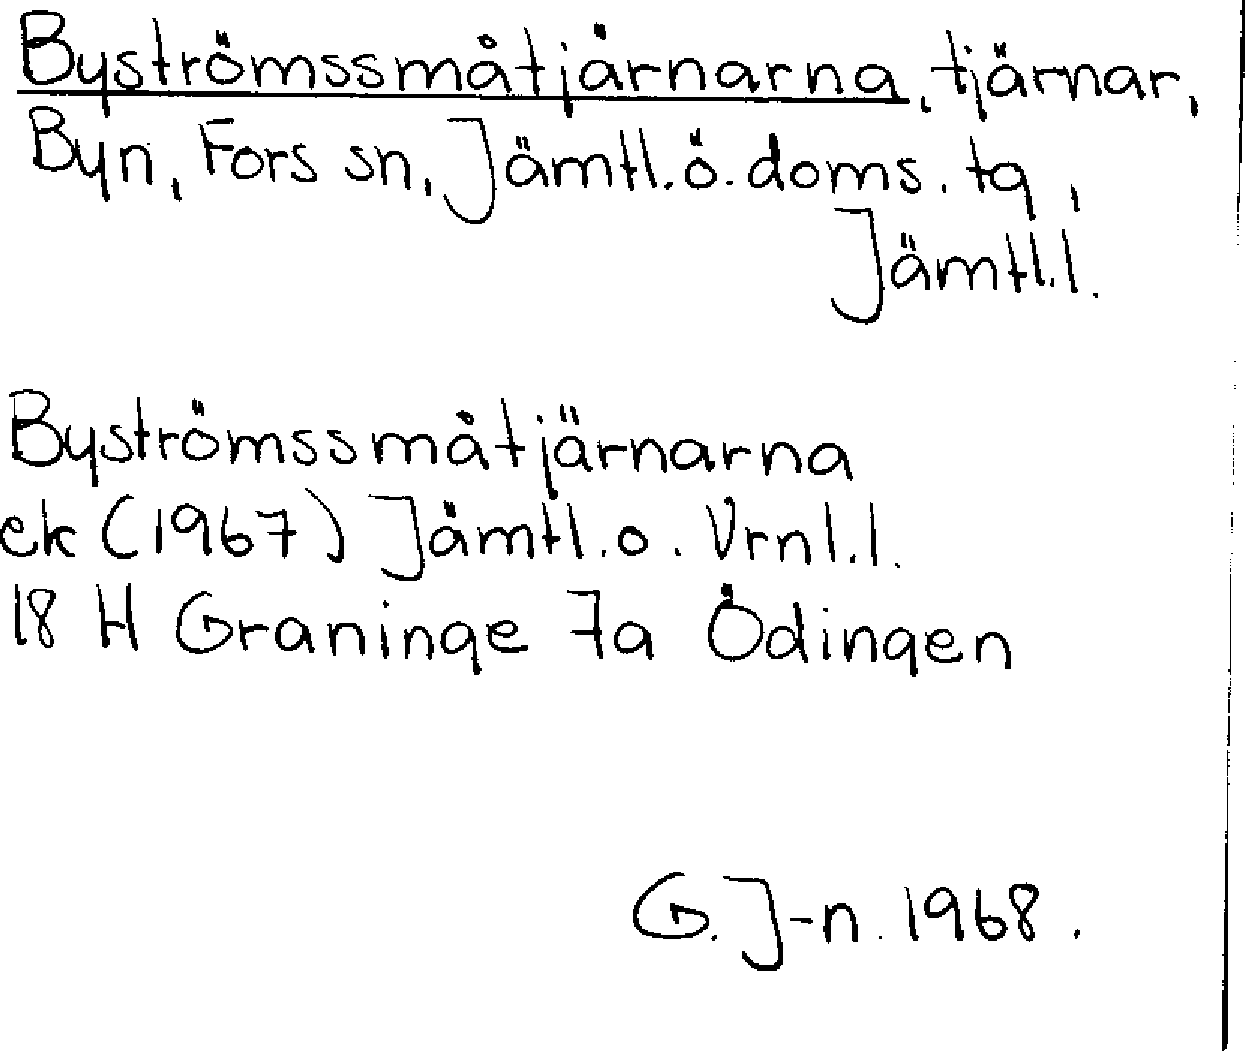 Byströmssmåtjärnarna, tjärnar,
Byn, Fors sn, Jämtl.ö.doms.tg,
Jämtl.l.
Byströmssmåtjärnarna
ek (1967) Jämtl.o. Vrnl.l.
18 H Graninge 7a Ödingen
G.J-n. 1968.